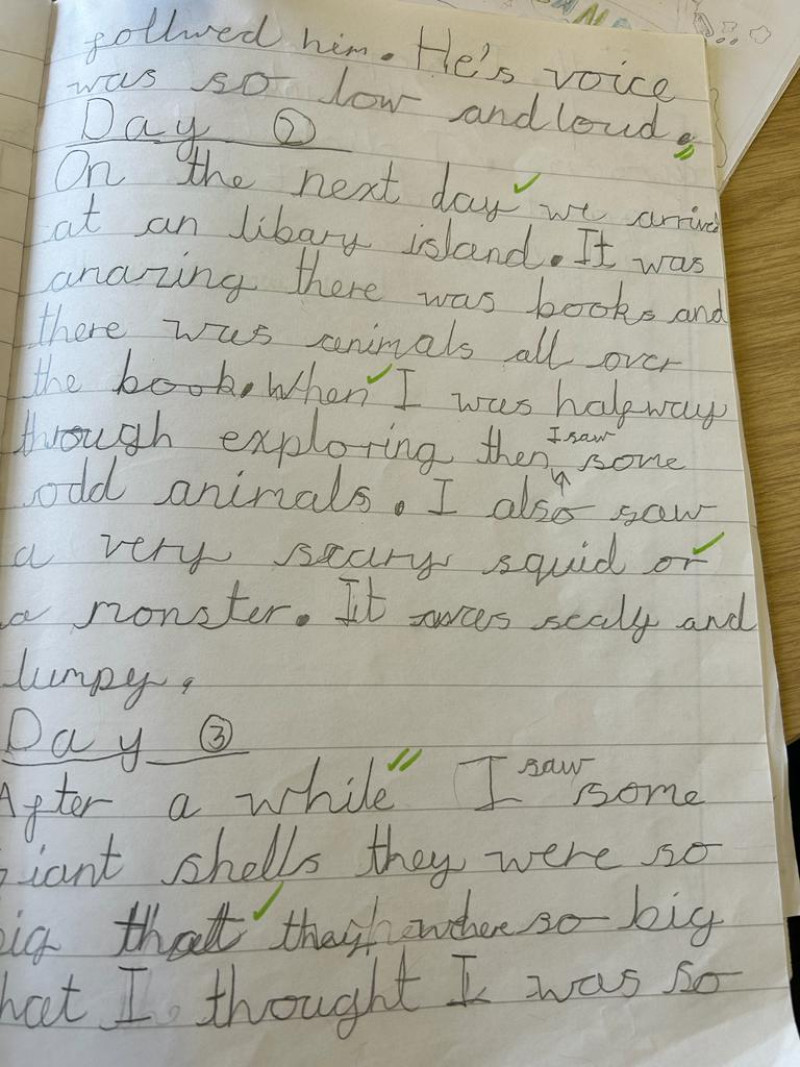 follwed him. He's voice
was so low and loud.
Day 2
On the next day we arrived
at an libary island. It was
amazing there was books and
there was animals all over
the book. When I was halfway
through exploring then I saw some
odd animals. I also saw
a very scary squid or
a monster. It was scaly and
lumpy.
Day 3
After a while I saw some
giant shells they were so
big that they where so big
that I thought I was so